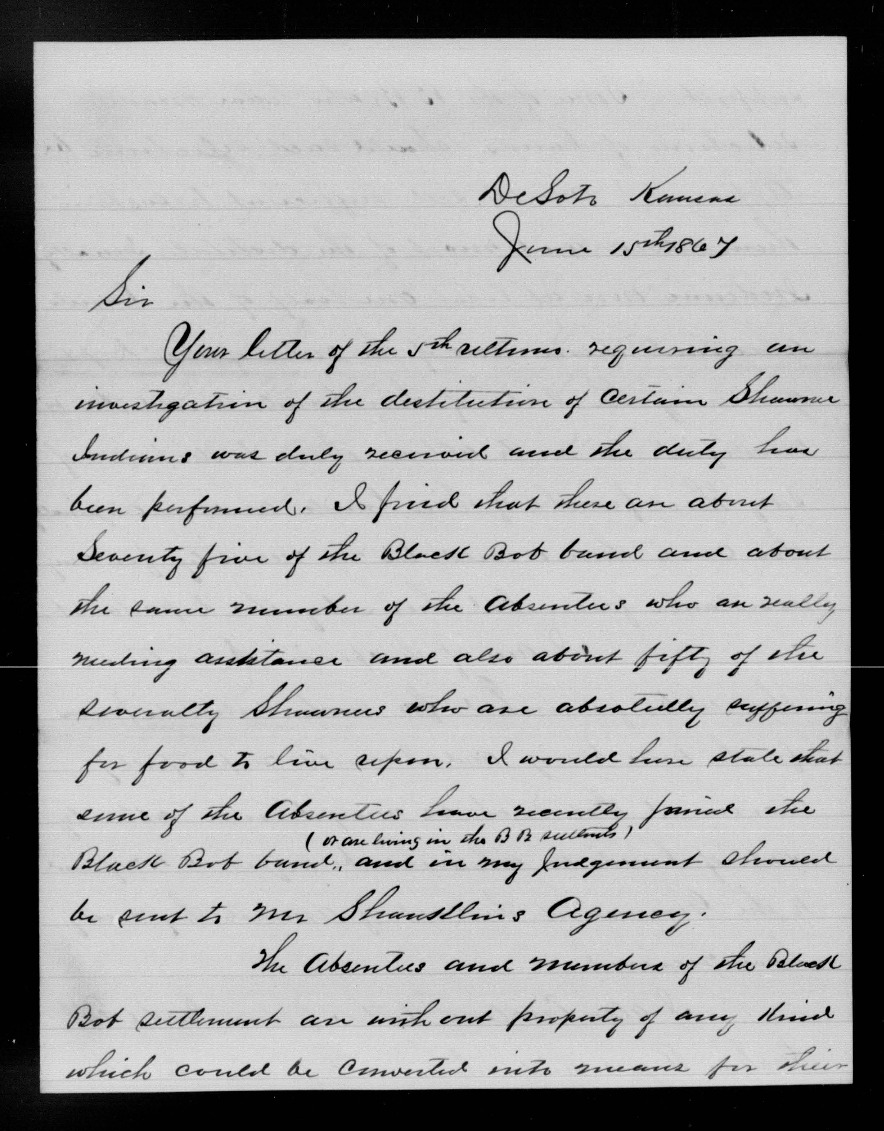 DeSoto Kansas
June 15th 1867
Sir
Your letter of the 5th requiring an
investigation of the destitution of certain Shawnee
Indians was duly received and the duty has
been performed. I find that there are about
Seventy five of the Black Bob band and about
the same number of the Absentees who are really
needing assistance and also about fifty of the
severalty Shawnees who are absolutely suffering
for food to live upon. I would here state that
some of the Absentees have recently joined the
(or are living in the B B settlmts)
Black Bob band, and in my Judgement should
be sent to Mr Agency.
The Absentees and members of the Black
Bob settlement are without property of any Kind
which could be converted into means for their